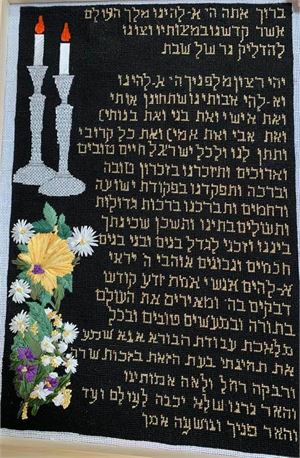 ברוך אתה ה׳ א-להינו מלך העולם
אשר קדשנו במצותיו וצונו
להדליק נר של שבת
יהי רצון מלפניך ה׳ א-להינו
וא-להי אבותינו שתחונן אותי
ואת אישי ואת בני ואת בנותי
ואת אבי ואת אמי ואת כל קרובי
ותתן לנו ולכל ישראל חיים טובים
וארוכים ותזכרנו בזכרון טובה
וברכה ותפקדנו בפקודת ישועה
ורחמים ותברכנו ברכות גדולות
ותשלים בתינו והשכן שכינתך
ביננו וזכני לגדל בנים ובני בנים
חכמים ונבונים אוהבי ה׳ יראי
א-להים אנשי אמת זרע קודש
דבקים בה׳ ומאירים את העולם
בתורה ובמעשים טובים ובכל
מלאכת עבודת הבורא אנא שמע
את תחינתי בעת הזאת בזכות שרה
ורבקה רחל ולאה אמותינו
והאר נרנו שלא יכבה לעולם ועד
והאר פניך ונושעה אמן